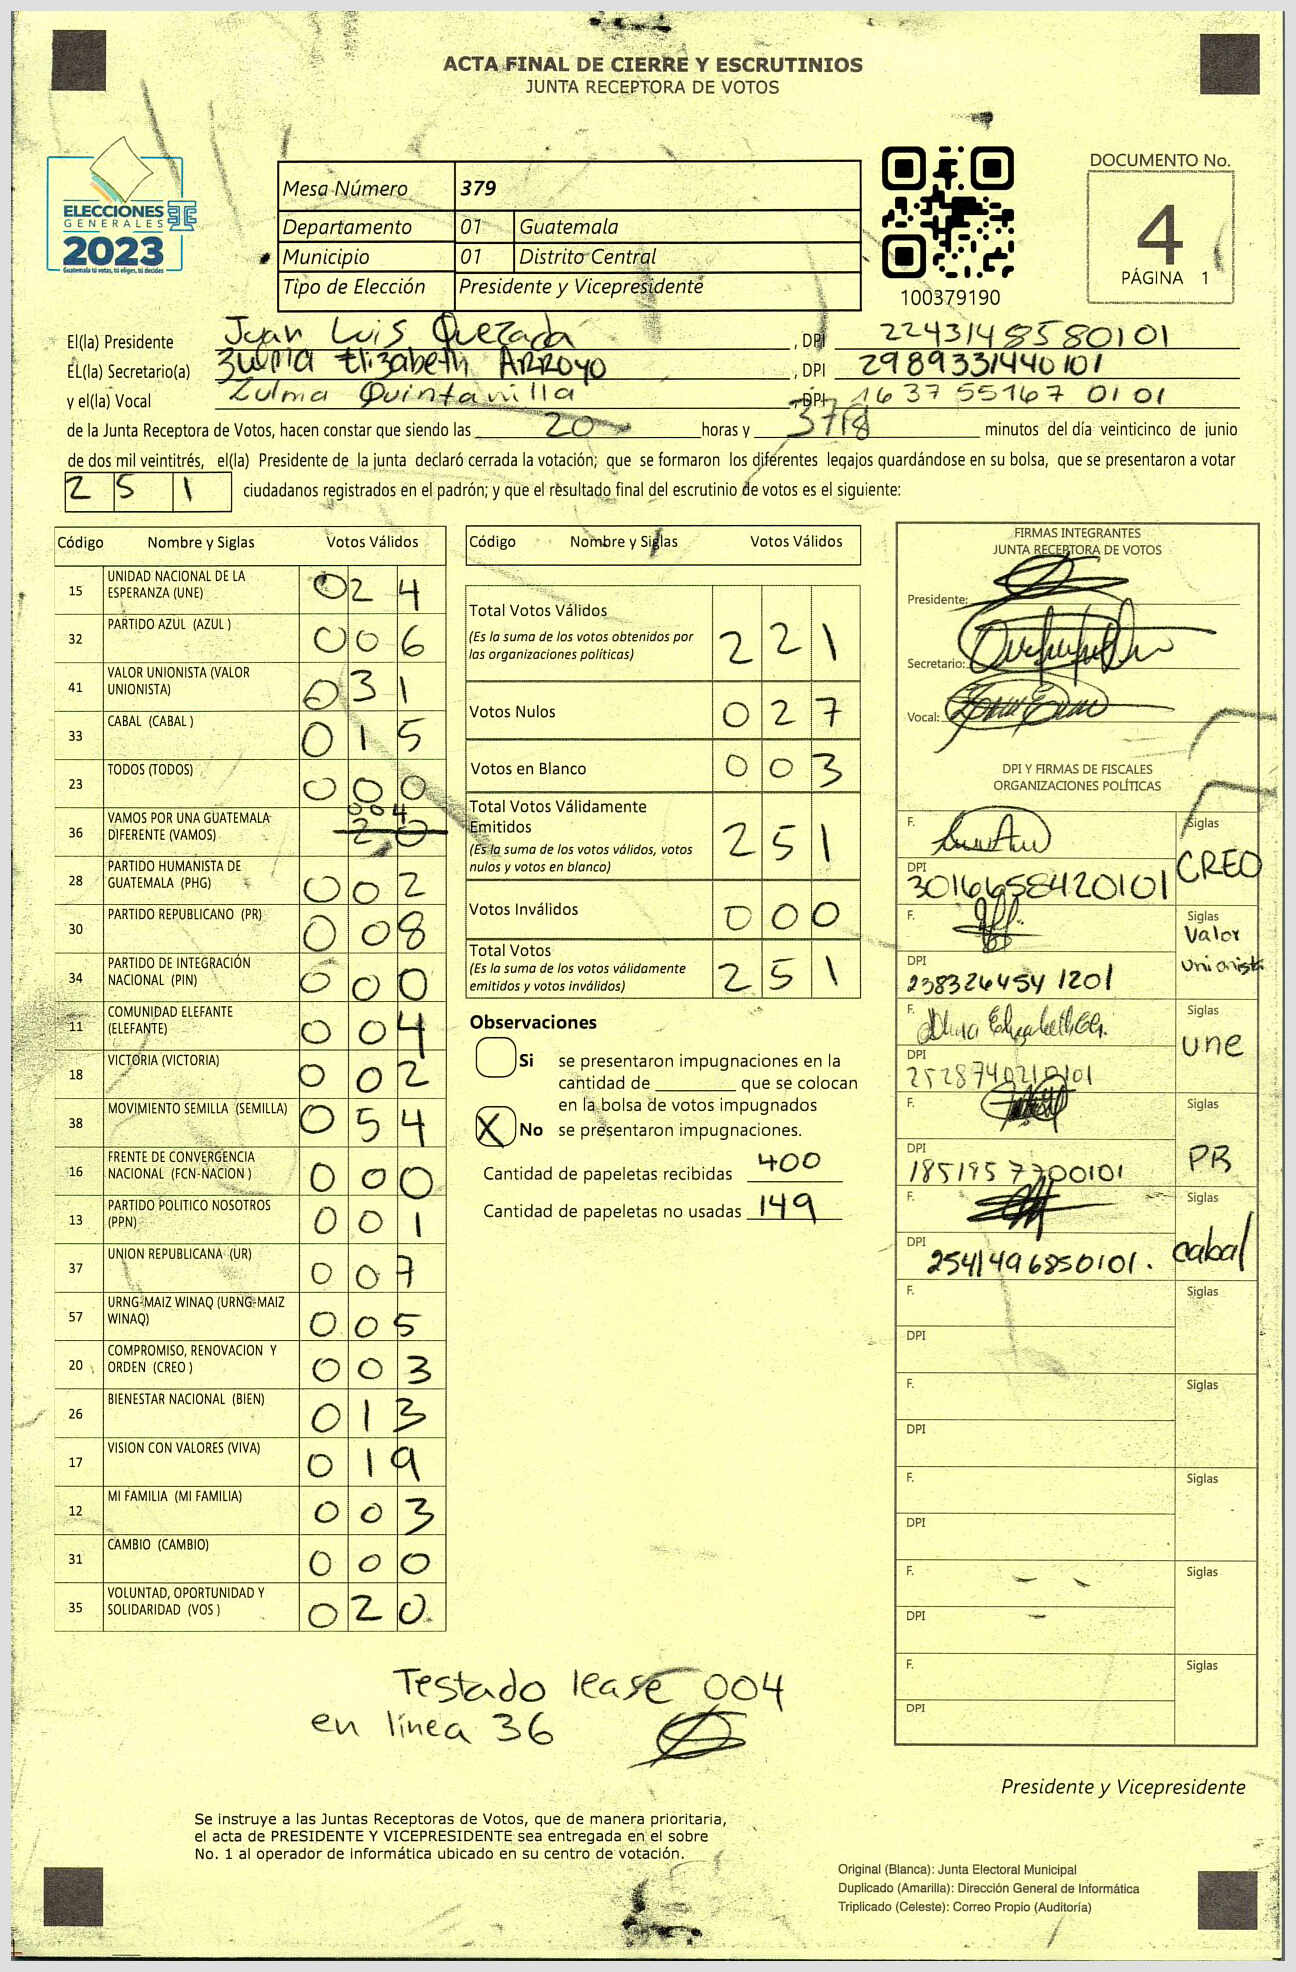 ACTA FINAL DE CIERRE Y ESCRUTINIOS
JUNTA RECEPTORA DE VOTOS
ELECCIONES
GENERALES
2023
Guatemala tú votas, tú eliges, tú decides
Mesa Número 379
Departamento 01 Guatemala
Municipio 01 Distrito Central
Tipo de Elección Presidente y Vicepresidente
100379190
DOCUMENTO No.
4
PÁGINA 1
El(la) Presidente Juan Luis Quezada, DPI 2243148580101
EL(la) Secretario(a) Zulma Elizabeth Arroyo, DPI 2989331440101
y el(la) Vocal Zulma Quintanilla, DPI 1637 55167 0101
de la Junta Receptora de Votos, hacen constar que siendo las 20 horas y minutos del día veinticinco de junio
de dos mil veintitrés, el(la) Presidente de la junta declaró cerrada la votación; que se formaron los diferentes legajos guardándose en su bolsa, que se presentaron a votar
251 ciudadanos registrados en el padrón; y que el resultado final del escrutinio de votos es el siguiente:
Código Nombre y Siglas Votos Válidos
15 UNIDAD NACIONAL DE LA ESPERANZA (UNE) 024
32 PARTIDO AZUL (AZUL ) 006
41 VALOR UNIONISTA (VALOR UNIONISTA) 031
33 CABAL (CABAL ) 015
23 TODOS (TODOS) 000
36 VAMOS POR UNA GUATEMALA DIFERENTE (VAMOS) 004 20
28 PARTIDO HUMANISTA DE GUATEMALA (PHG) 002
30 PARTIDO REPUBLICANO (PR) 008
34 PARTIDO DE INTEGRACIÓN NACIONAL (PIN) 000
11 COMUNIDAD ELEFANTE (ELEFANTE) 004
18 VICTORIA (VICTORIA) 002
38 MOVIMIENTO SEMILLA (SEMILLA) 054
16 FRENTE DE CONVERGENCIA NACIONAL (FCN-NACION ) 000
13 PARTIDO POLITICO NOSOTROS (PPN) 001
37 UNION REPUBLICANA (UR) 007
57 URNG-MAIZ WINAQ (URNG-MAIZ WINAQ) 005
20 COMPROMISO, RENOVACION Y ORDEN (CREO ) 003
26 BIENESTAR NACIONAL (BIEN) 013
17 VISION CON VALORES (VIVA) 019
12 MI FAMILIA (MI FAMILIA) 003
31 CAMBIO (CAMBIO) 000
35 VOLUNTAD, OPORTUNIDAD Y SOLIDARIDAD (VOS ) 020
Código Nombre y Siglas Votos Válidos
Total Votos Válidos 221
(Es la suma de los votos obtenidos por
las organizaciones políticas)
Votos Nulos 027
Votos en Blanco 003
Total Votos Válidamente
Emitidos 251
(Es la suma de los votos válidos, votos
nulos y votos en blanco)
Votos Inválidos 000
Total Votos 251
(Es la suma de los votos válidamente
emitidos y votos inválidos)
Observaciones
Si se presentaron impugnaciones en la
cantidad de ________ que se colocan
en la bolsa de votos impugnados
X No se presentaron impugnaciones.
Cantidad de papeletas recibidas 400
Cantidad de papeletas no usadas 149
FIRMAS INTEGRANTES
JUNTA RECEPTORA DE VOTOS
Presidente:
Secretario:
Vocal:
DPI Y FIRMAS DE FISCALES
ORGANIZACIONES POLÍTICAS
F. Siglas CREO
DPI 3016658420101
F. Siglas Valor Unionista
DPI 238326454 1201
F. Siglas une
DPI 2528740210101
F. Siglas PR
DPI 1851957700101
F. Siglas cabal
DPI 2541496850101.
F. Siglas
DPI
F. Siglas
DPI
F. Siglas
DPI
F. Siglas
DPI
F. Siglas
DPI
Testado lease 004
en línea 36
Presidente y Vicepresidente
Se instruye a las Juntas Receptoras de Votos, que de manera prioritaria,
el acta de PRESIDENTE Y VICEPRESIDENTE sea entregada en el sobre
No. 1 al operador de informática ubicado en su centro de votación.
Original (Blanca): Junta Electoral Municipal
Duplicado (Amarilla): Dirección General de Informática
Triplicado (Celeste): Correo Propio (Auditoría)